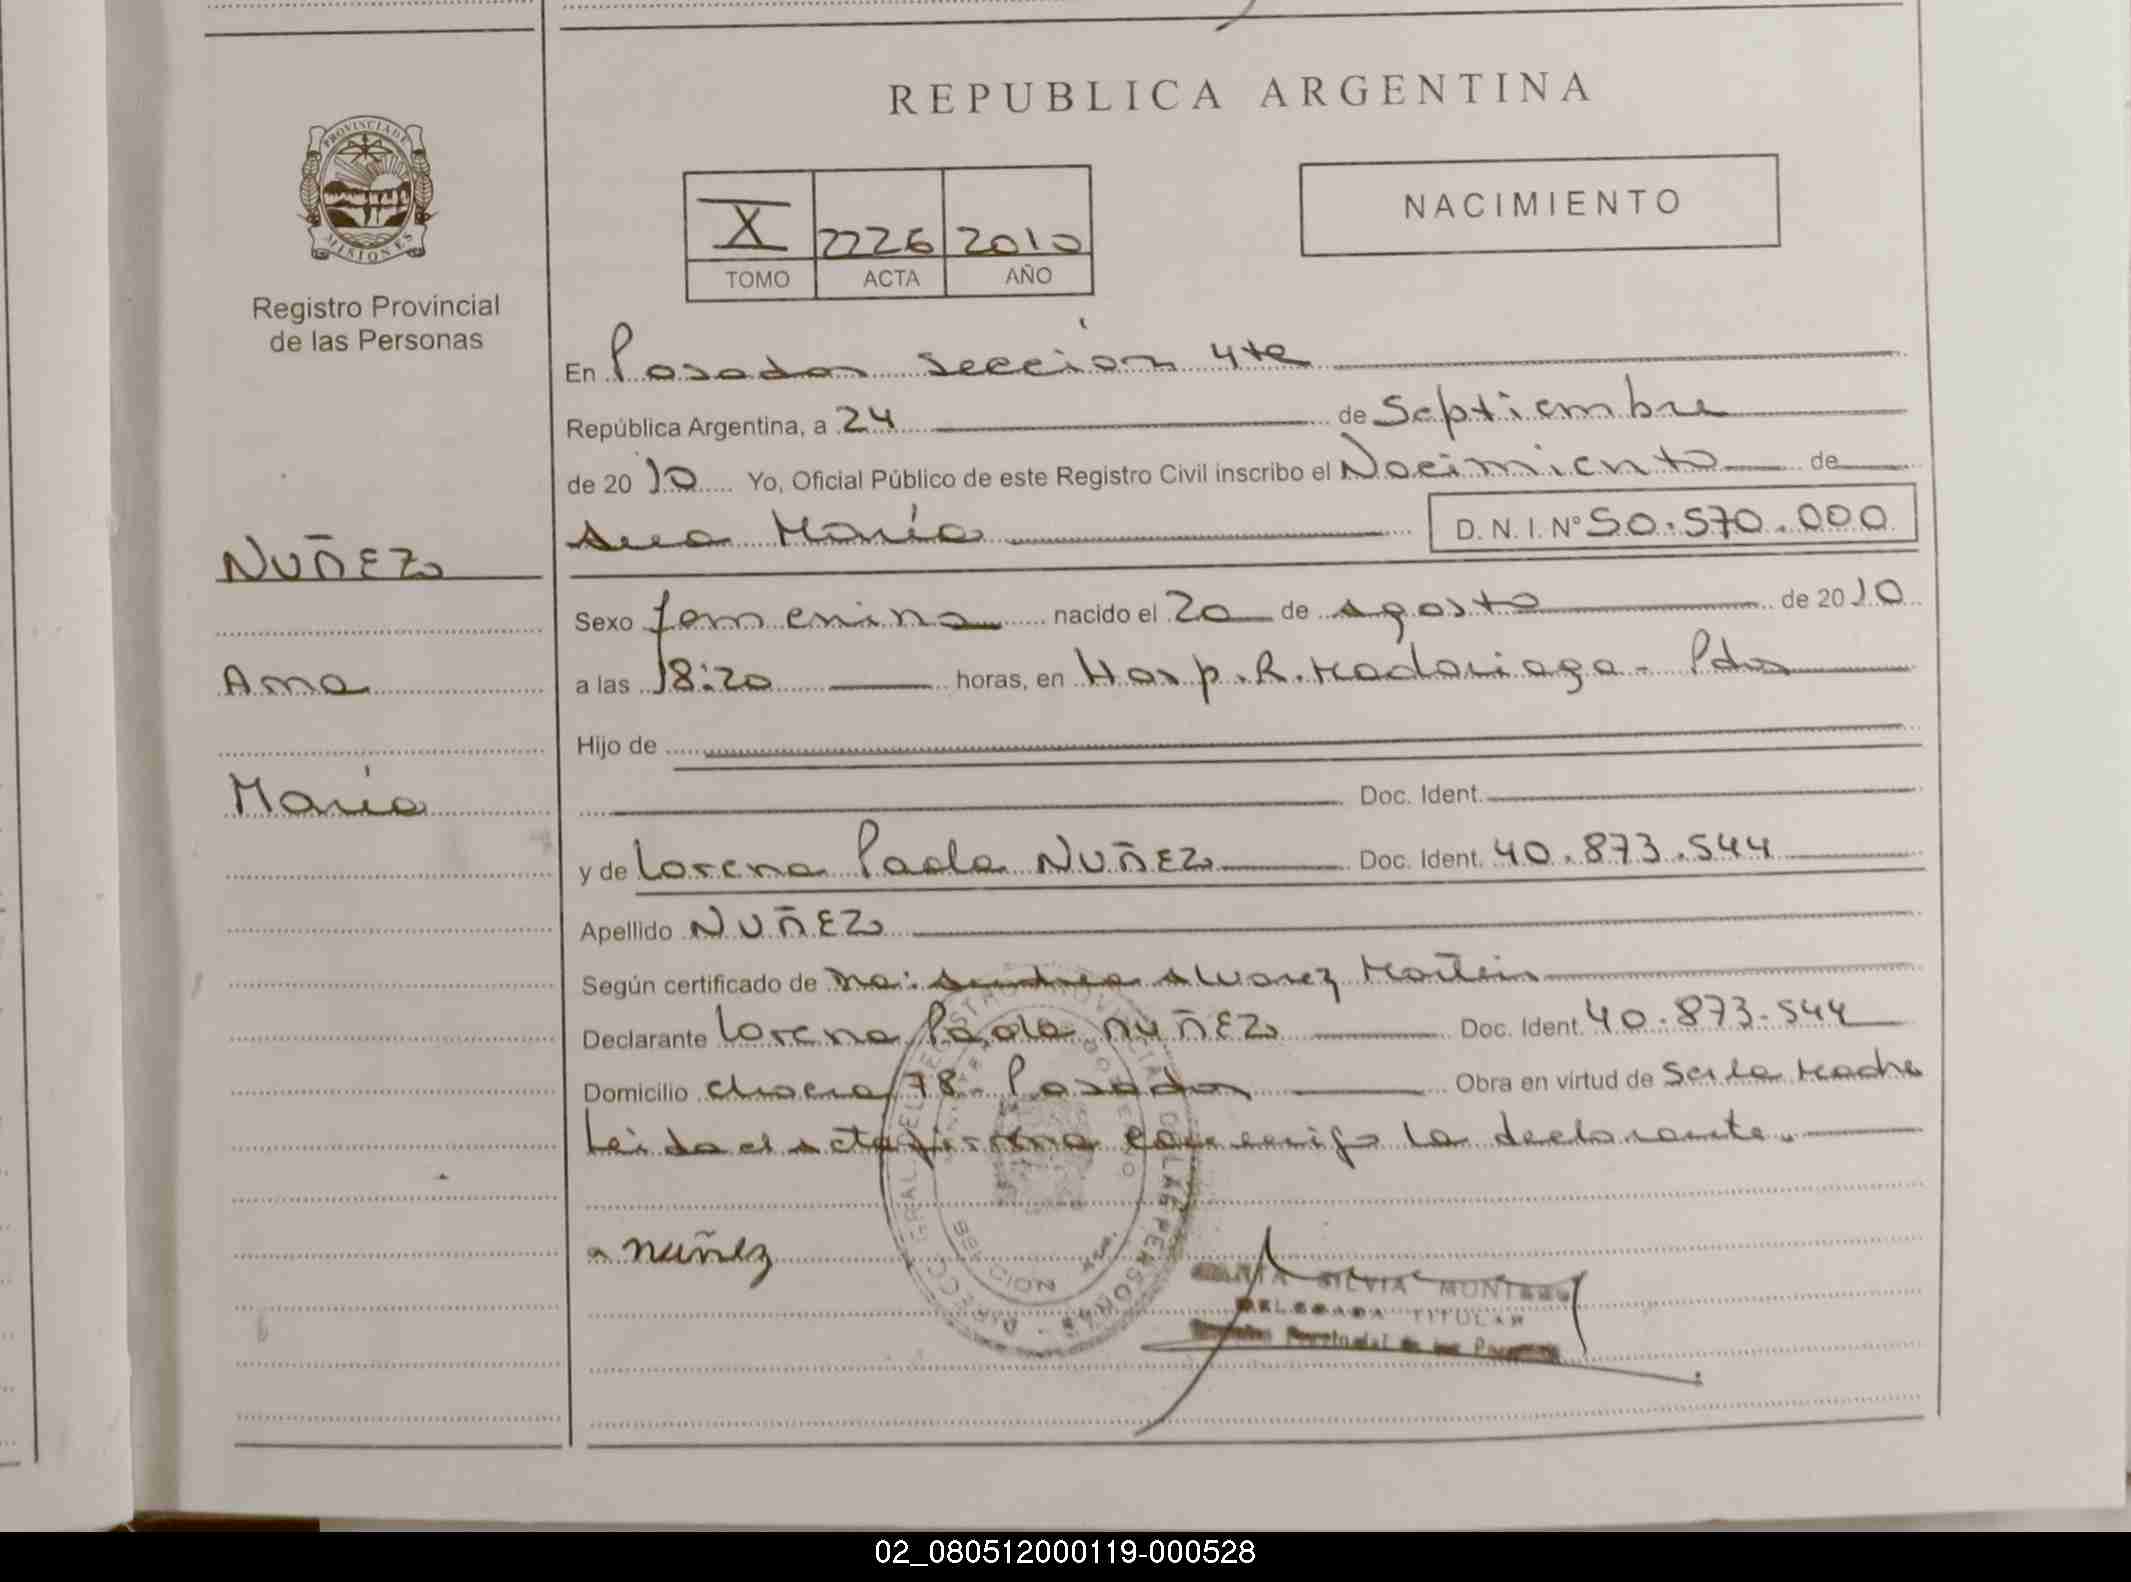 REPUBLICA ARGENTINA
PROVINCIA DE
MISIONES
Registro Provincial
de las Personas
X 2226 2010
TOMO ACTA AÑO
NACIMIENTO
En Posadas sección 4ta
República Argentina, a 24 de Septiembre
de 2010 Yo, Oficial Público de este Registro Civil inscribo el Nacimiento de
Ana María D. N. I. N° 50.570.000
NUÑEZ
Ana
María
Sexo femenino nacido el 20 de agosto de 2010
a las 18:20 horas, en Hosp. R. Madariaga - Pdas
Hijo de
Doc. Ident.
y de Lorena Paola NUÑEZ Doc. Ident. 40.873.544
Apellido NUÑEZ
Según certificado de Alvarez Martin
Declarante Lorena Paola NUÑEZ Doc. Ident. 40.873.544
Domicilio chacra 78 - Posadas Obra en virtud de Ser la Madre
Leida el acta firma conmigo la declarante.
Nuñez
SILVIA
DELEGADA TITULAR
02_080512000119-000528